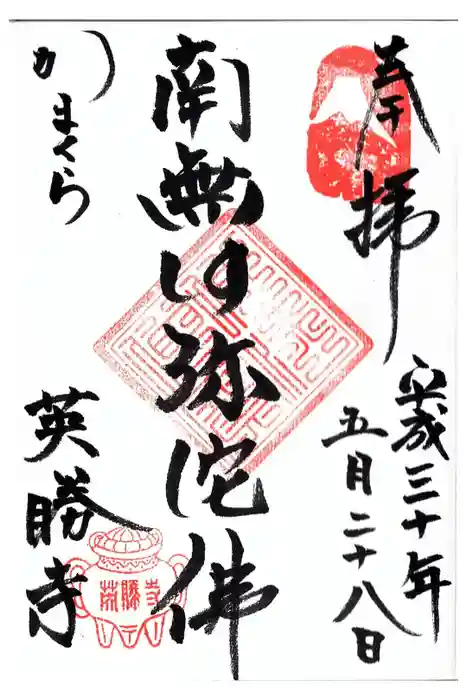 奉拝
平成三十年
五月二十八日
南無阿弥陀佛
かまくら
英勝寺
英勝寺